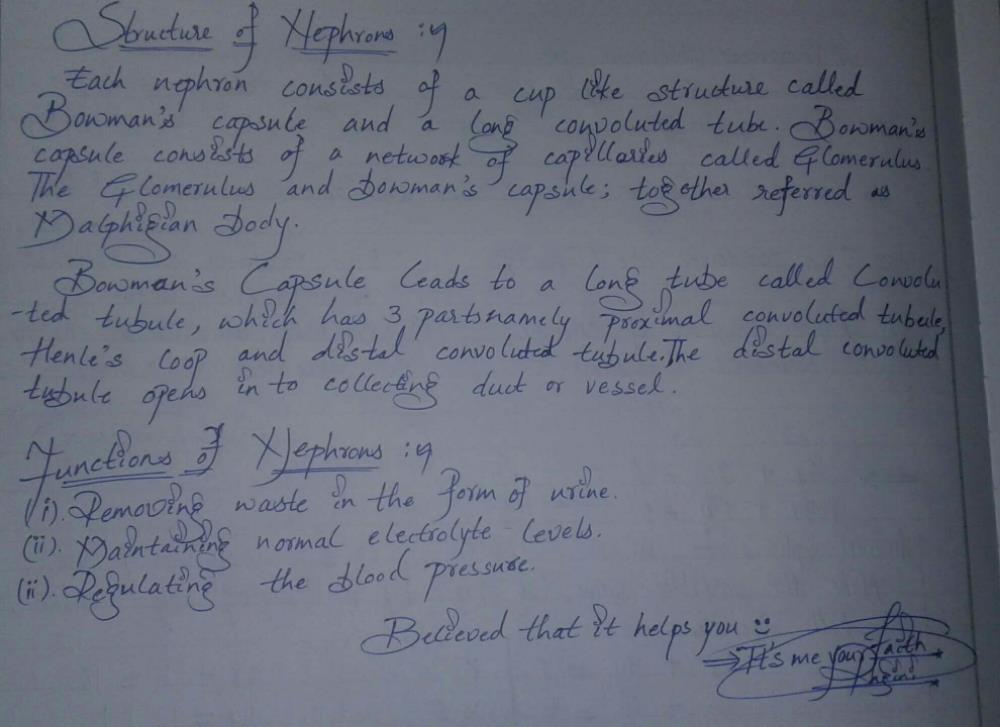 Structure of Nephrons :-
Each nephron consists of a cup like structure called
Bowman's capsule and a long convoluted tube. Bowman's
capsule consists of a network of capillaries called Glomerulus
The Glomerulus and Bowman's capsule; together referred as
Malphigian Body.
Bowman's Capsule leads to a long tube called Convolu
-ted tubule, which has 3 parts namely proximal convoluted tubule,
Henle's loop and distal convoluted tubule. The distal convoluted
tubule opens in to collecting duct or vessel.
Functions of Nephrons :-
(i). Removing waste in the form of urine.
(ii). Maintaining normal electrolyte levels.
(ii). Regulating the blood pressure.
Believed that it helps you
It's me your faith